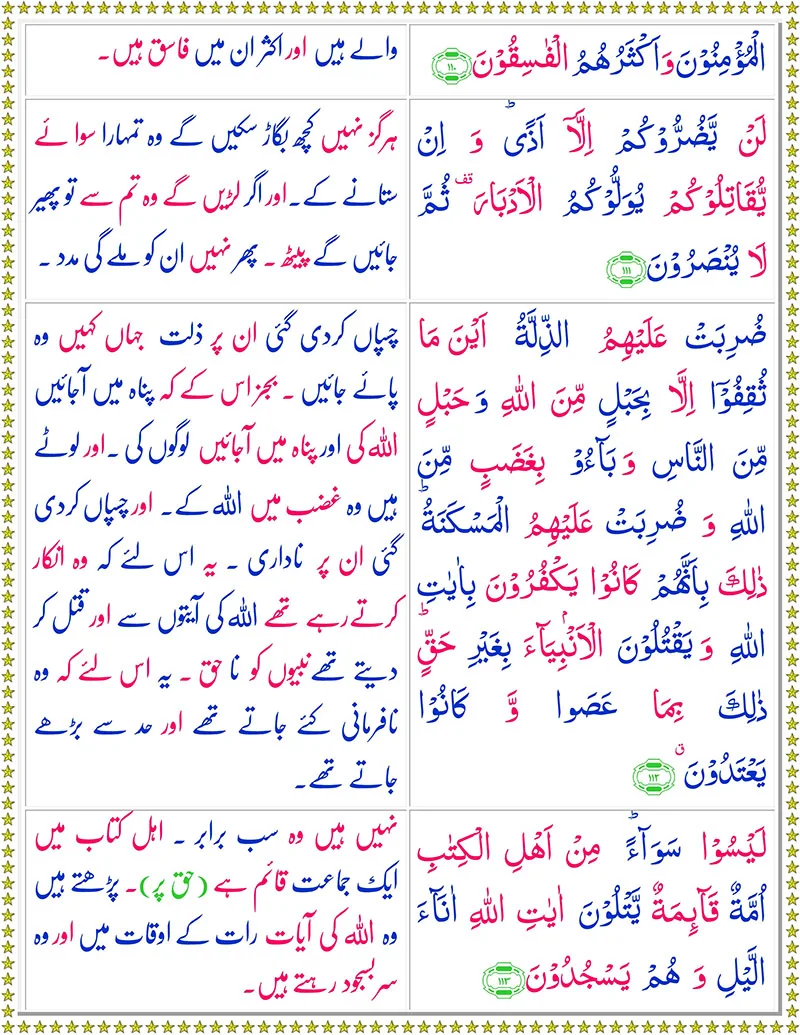 الْمُؤْمِنُوْنَ وَاَكْثَرُهُمُ الْفٰسِقُوْنَ ﴿۱۱۰﴾
والے ہیں اور اکثر ان میں فاسق ہیں۔
لَنْ يَّضُرُّوْكُمْ اِلَّاۤ اَذًىؕ وَ اِنْ
يُّقَاتِلُوْكُمْ يُوَلُّوْكُمُ الْاَدْبَارَ ۫ ثُمَّ
لَا يُنْصَرُوْنَ ﴿۱۱۱﴾
ہرگز نہیں کچھ بگاڑ سکیں گے وہ تمہارا سوائے
ستانے کے۔ اور اگر لڑیں گے وہ تم سے تو پھیر
جائیں گے پیٹھ ۔ پھر نہیں ان کو ملے گی مدد ۔
ضُرِبَتْ عَلَيْهِمُ الذِّلَّةُ اَيْنَ مَا
ثُقِفُوْۤا اِلَّا بِحَبْلٍ مِّنَ اللهِ وَ حَبْلٍ
مِّنَ النَّاسِ وَ بَآءُوْ بِغَضَبٍ مِّنَ
اللهِ وَ ضُرِبَتْ عَلَيْهِمُ الْمَسْكَنَةُؕ
ذٰلِكَ بِاَنَّهُمْ كَانُوْا يَكْفُرُوْنَ بِاٰيٰتِ
اللهِ وَ يَقْتُلُوْنَ الْاَنْۢبِيَآءَ بِغَيْرِ حَقٍّؕ
ذٰلِكَ بِمَا عَصَوا وَّ كَانُوْا
يَعْتَدُوْنَ ۗ ﴿۱۱۲﴾
چسپاں کردی گئی ان پر ذلت جہاں کہیں وہ
پائے جائیں ۔ بجز اس کے کہ پناہ میں آجائیں
اللہ کی اور پناہ میں آجائیں لوگوں کی ۔ اور لوٹے
ہیں وہ غضب میں اللہ کے۔ اور چسپاں کردی
گئی ان پر ناداری ۔ یہ اس لئے کہ وہ انکار
کرتے رہے تھے اللہ کی آیتوں سے اور قتل کر
دیتے تھے نبیوں کو نا حق ۔ یہ اس لئے کہ وہ
نافرمانی کئے جاتے تھے اور حد سے بڑھے
جاتے تھے۔
لَيْسُوْا سَوَآءًؕ مِنْ اَهْلِ الْكِتٰبِ
اُمَّةٌ قَآئِمَةٌ يَّتْلُوْنَ اٰيٰتِ اللهِ اٰنَآءَ
الَّيْلِ وَ هُمْ يَسْجُدُوْنَ ﴿۱۱۳﴾
نہیں ہیں وہ سب برابر ۔ اہل کتاب میں
ایک جماعت قائم ہے (حق پر)۔ پڑھتے ہیں
وہ اللہ کی آیات رات کے اوقات میں اور وہ
سربسجود رہتے ہیں۔